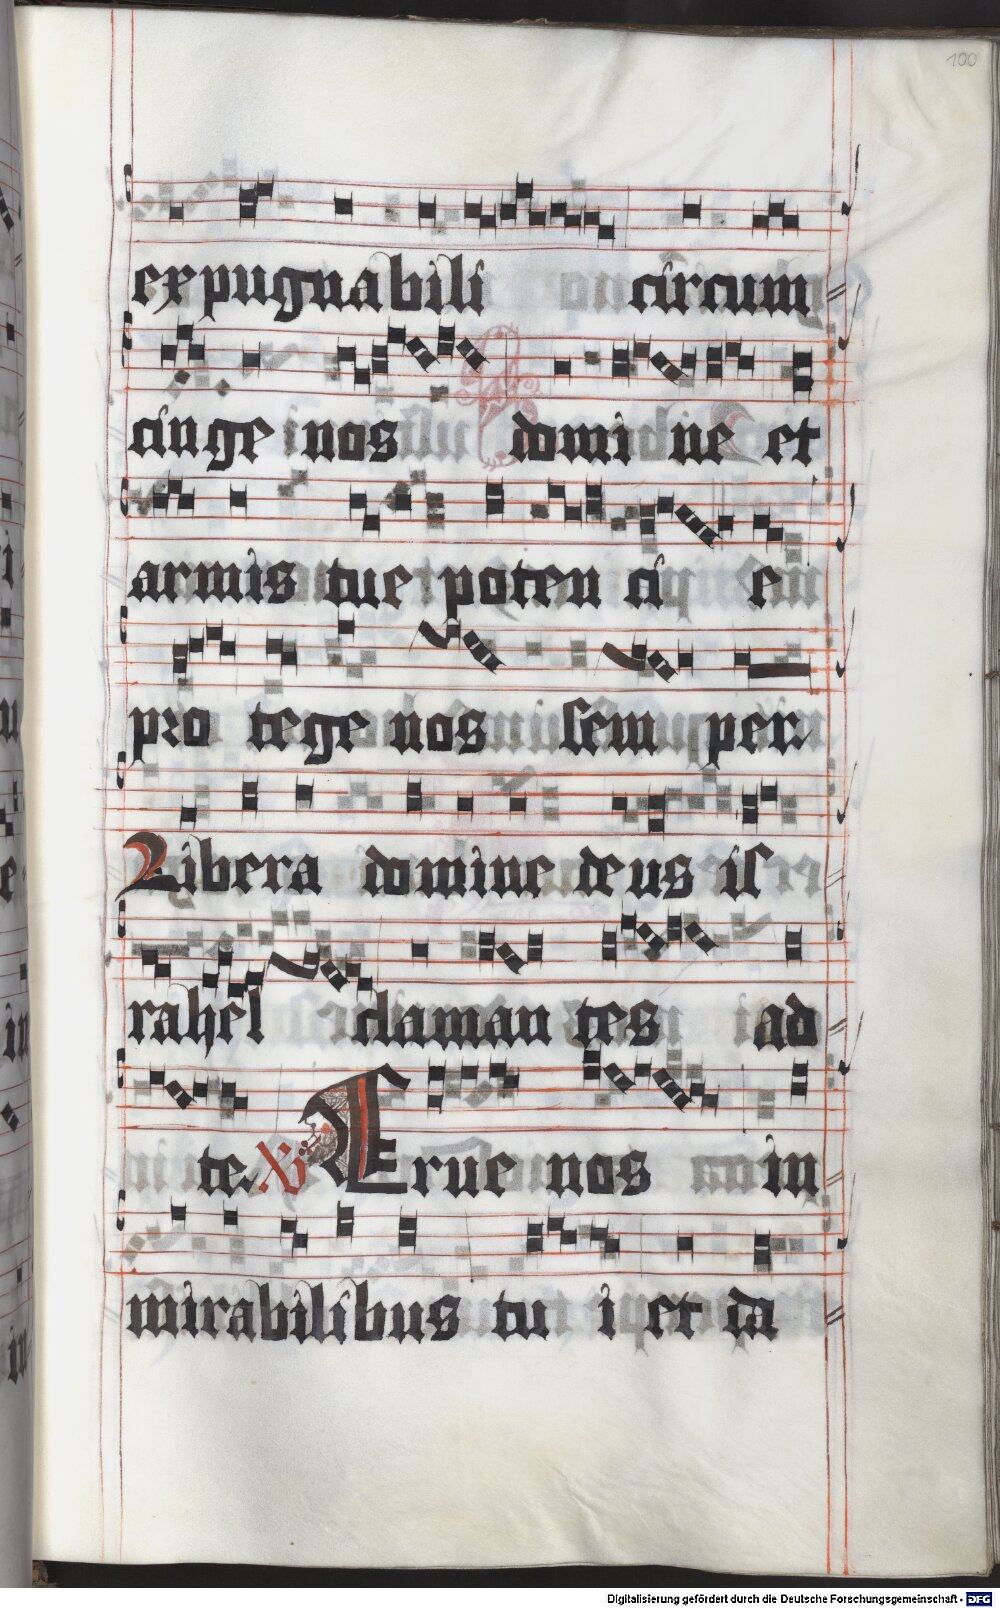 100
expugnabili circum
cinge nos domi ne et
armis tue poten ci e
pro tege nos sem per.
Libera domine deus is
rahel claman tes ad
te. Erue nos in
mirabilibus tu i et da
Digitalisierung gefördert durch die Deutsche Forschungsgemeinschaft - DFG